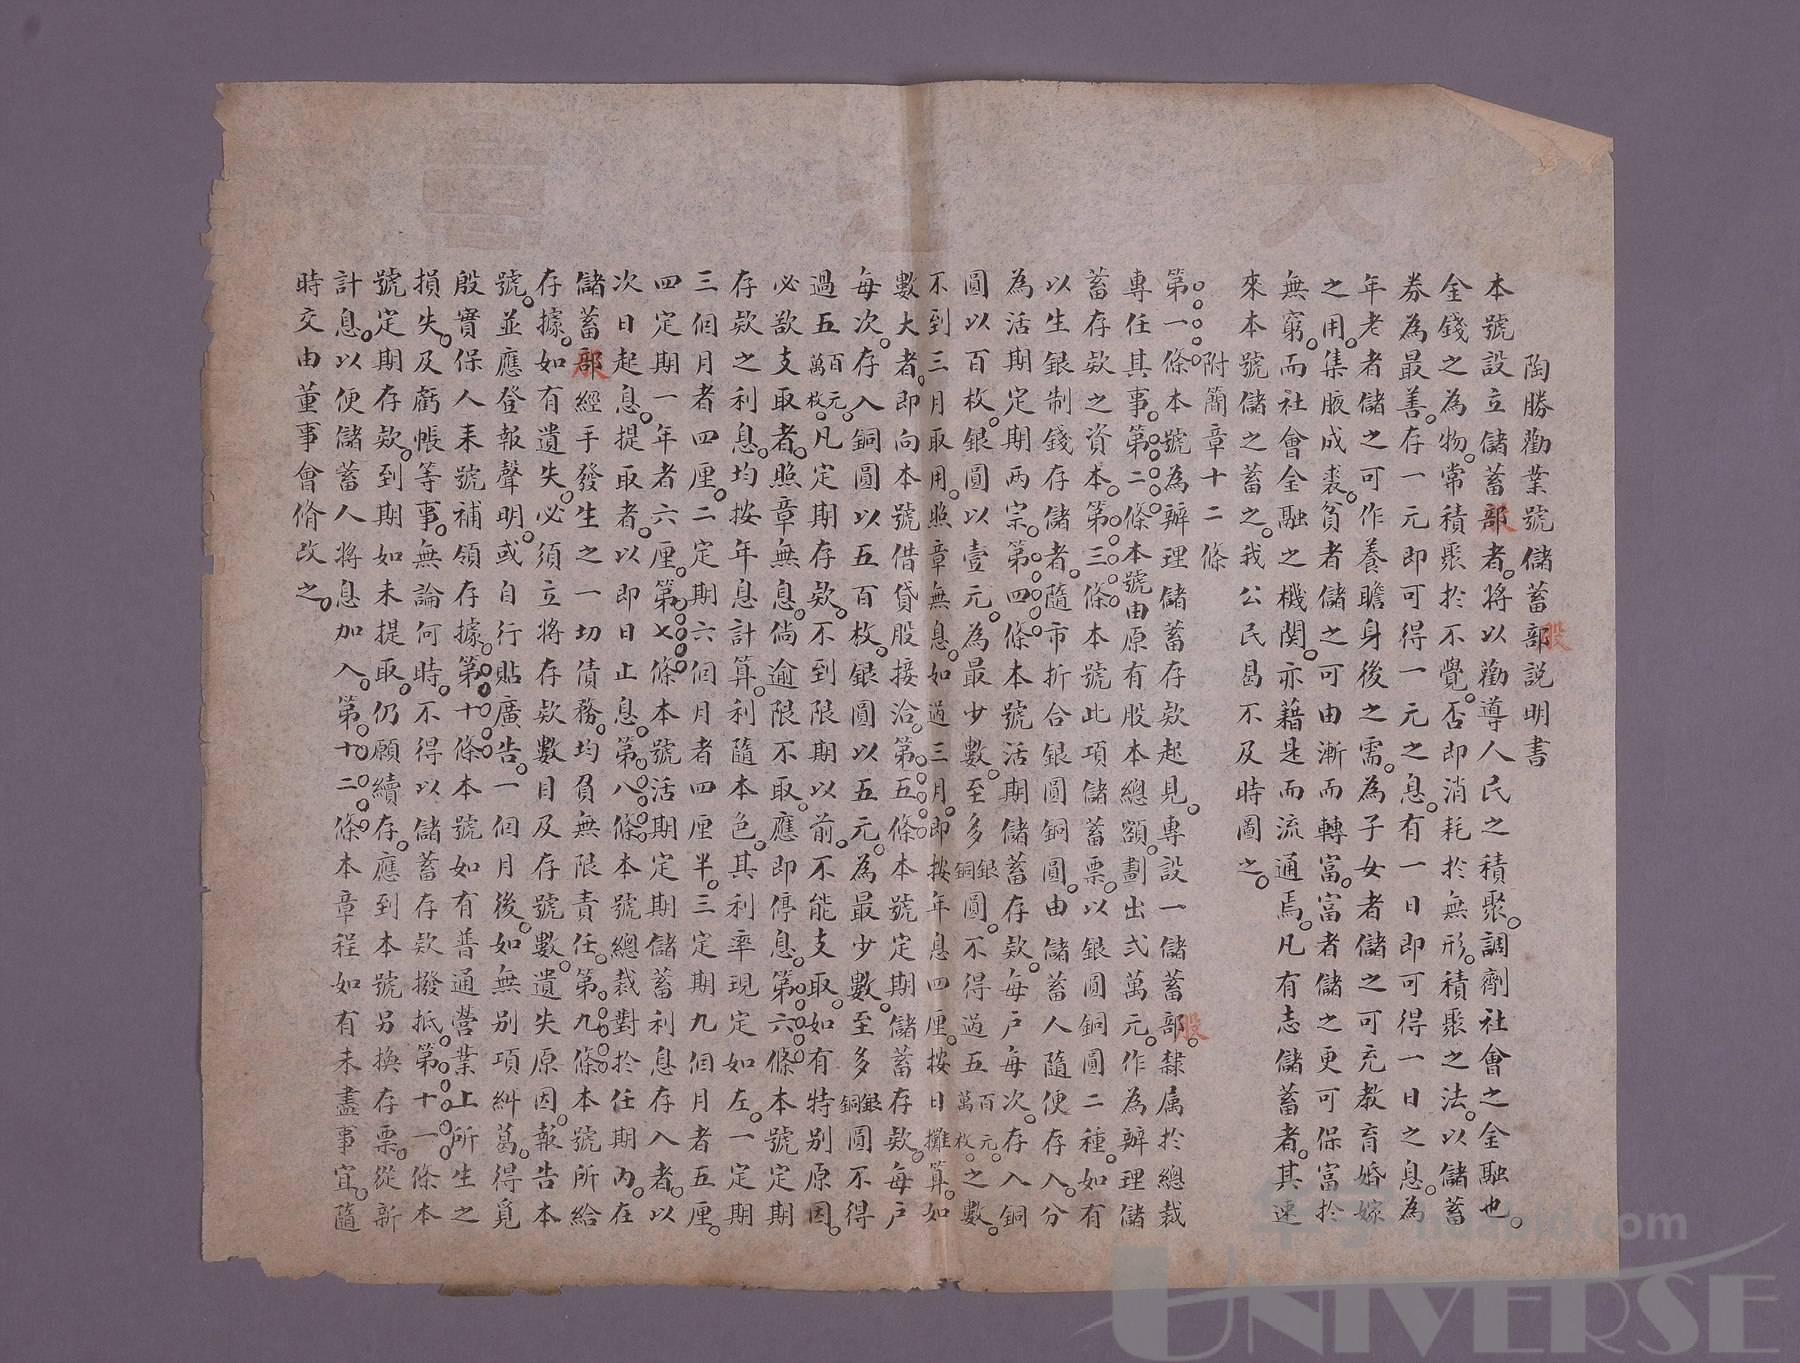 陶勝勸業號儲蓄部説明書
股
本號設立儲蓄部者。將以勸導人民之積聚。調劑社會之金融也。
金錢之為物。常積聚於不覺。否即消耗於無形。積聚之法。以儲蓄
券為最善。存一元即可得一元之息。有一日即可得一日之息。為
年老者儲之可作養瞻身後之需。為子女者儲之可充教育婚嫁
之用。集腋成裘。貧者儲之可由漸而轉富。富者儲之更可保富於
無窮。而社會全融之機関。亦藉是而流通焉。凡有志儲蓄者。其速
來本號儲之蓄之。我公民曷不及時圖之。
附簡章十二條
第一條本號為辦理儲蓄存欵起見。專設一儲蓄部。隸属於總裁
股
專任其事。第二條本號由原有股本總額。劃出弍萬元。作為辦理儲
蓄存欵之資本。第三條本號此項儲蓄票。以銀圓銅圓二種。如有
以生銀制錢存儲者。隨市折合銀圓銅圓。由儲蓄人隨便存入。分
為活期定期两宗。第四條本號活期儲蓄存欵。每戶每次。存入銅
圓以百枚。銀圓以壹元。為最少數。至多銀銅圓。不得過五百元萬枚。之數。
不到三月取用。照章無息。如過三月。即按年息四厘。按日攤算。如
數大者。即向本號借貸股接洽。第五條本號定期儲蓄存欵。每戶
每次。存入銅圓以五百枚。銀圓以五元。為最少數。至多銀銅圓不得
過五百元萬枚。凡定期存欵。不到限期以前。不能支取。如有特别原因。
必欲支取者。照章無息。倘逾限不取。應即停息。第六條本號定期
存欵之利息。均按年息計算。利隨本色。其利率現定如左。一定期
三個月者四厘。二定期六個月者四厘半。三定期九個月者五厘。
四定期一年者六厘。第七條本號活期定期儲蓄利息存入者。以
次日起息。提取者。以即日止息。第八條本號總裁對於任期內。在
儲蓄部經手發生之一切債務。均負無限責任。第九條本號所給
存據。如有遺失。必須立將存欵數目及存號數。遺失原因。報告本
號。並應登報聲明。或自行貼廣告。一個月後。如無别項糾葛。得覓
殷實保人來號補領存據。第十條本號如有普通營業上所生之
損失。及虧帳等事。無論何時。不得以儲蓄存欵撥抵。第十一條本
號定期存欵。到期如未提取。仍願續存。應到本號另換存票。從新
計息。以便儲蓄人將息加入。第十二條本章程如有未盡事宜。隨
時交由董事會脩改之。
华宇 huabid.com
UNIVERSE